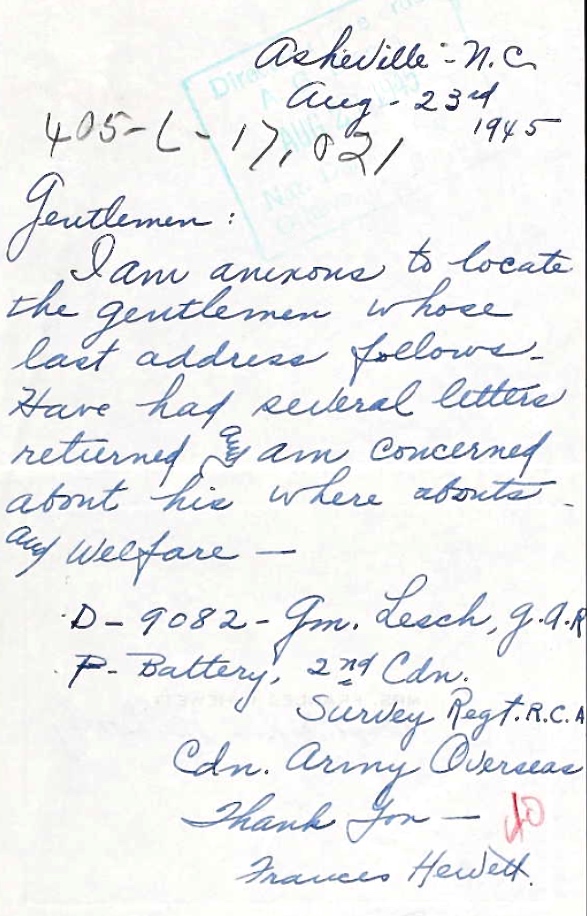 Asheville - N.C.
Aug - 23rd
1945
405-L-17,021
Gentlemen:
I am anxious to locate
the gentlemen whose
last address follows -
Have had several letters
returned and am concerned
about his where abouts -
and Welfare —
D - 9082 - Gm. Lesch, G.A.R
P - Battery, 2nd Cdn.
Survey Regt. R.C.A
Cdn. Army Overseas
Thank You —
Frances Hewett.